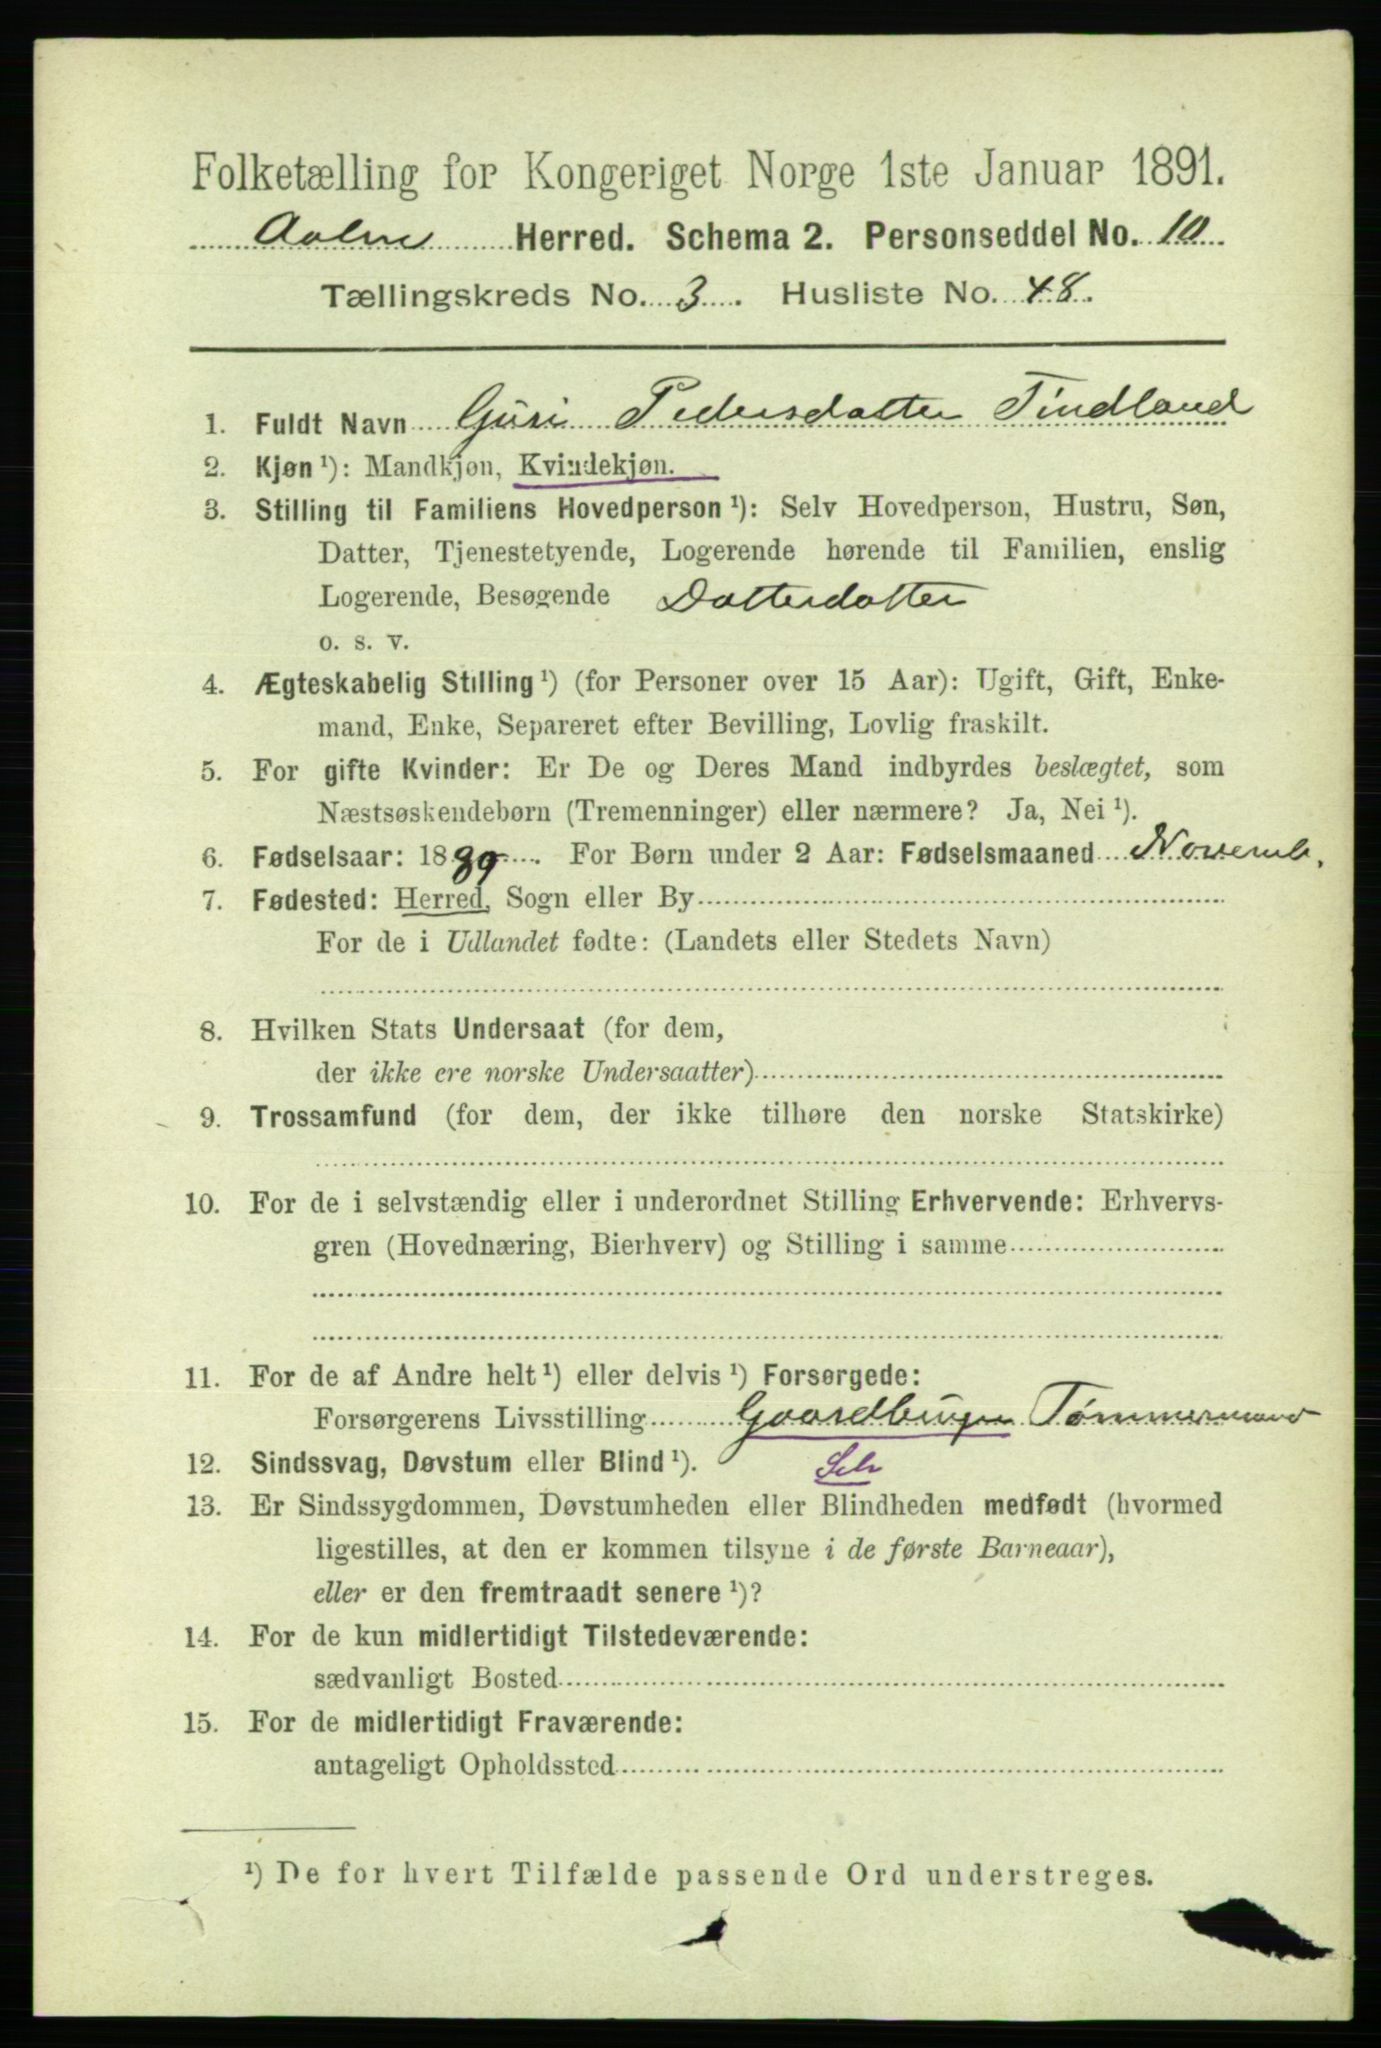 Folketælling for Kongeriget Norge 1ste Januar 1891.
Aalen Herred. Schema 2. Personseddel No. 10
Tællingskreds No. 3. Husliste No. 48.
1. Fuldt Navn Guri Pedersdatter Tindland
2. Kjøn ¹): Mandkjøn, Kvindekjøn.
3. Stilling til Familiens Hovedperson ¹): Selv Hovedperson, Hustru, Søn,
Datter, Tjenestetyende, Logerende hørende til Familien, enslig
Logerende, Besøgende Datterdatter
o. s. v.
4. Ægteskabelig Stilling ¹) (for Personer over 15 Aar): Ugift, Gift, Enke-
mand, Enke, Separeret efter Bevilling, Lovlig fraskilt.
5. For gifte Kvinder: Er De og Deres Mand indbyrdes beslægtet, som
Næstsøskendebørn (Tremenninger) eller nærmere? Ja, Nei ¹).
6. Fødselsaar: 1889. For Børn under 2 Aar: Fødselsmaaned Novemb.
7. Fødested: Herred, Sogn eller By
For de i Udlandet fødte: (Landets eller Stedets Navn)
8. Hvilken Stats Undersaat (for dem,
der ikke ere norske Undersaatter)
9. Trossamfund (for dem, der ikke tilhøre den norske Statskirke)
10. For de i selvstændig eller i underordnet Stilling Erhvervende: Erhvervs-
gren (Hovednæring, Bierhverv) og Stilling i samme
11. For de af Andre helt ¹) eller delvis ¹) Forsørgede:
Forsørgerens Livsstilling Gaardbruger Tømmermand
12. Sindssvag, Døvstum eller Blind ¹). Selv
13. Er Sindssygdommen, Døvstumheden eller Blindheden medfødt (hvormed
ligestilles, at den er kommen tilsyne i de første Barneaar),
eller er den fremtraadt senere ¹)?
14. For de kun midlertidigt Tilstedeværende:
sædvanligt Bosted
15. For de midlertidigt Fraværende:
antageligt Opholdssted
¹) De for hvert Tilfælde passende Ord understreges.